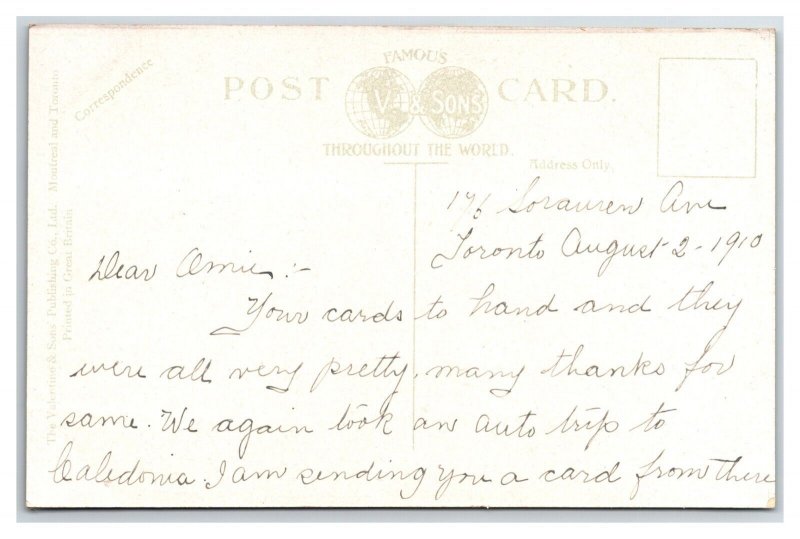 Correspondence
FAMOUS
POST CARD.
V. & SONS
THROUGHOUT THE WORLD.
Address Only.
The Valentine & Sons Publishing Co., Ltd. Montreal and Toronto
Printed in Great Britain
176 Sorauren Ave
Toronto August 2-1910
Dear Amie:-
Your cards to hand and they
were all very pretty, many thanks for
same. We again took an auto trip to
Caledonia. I am sending you a card from there